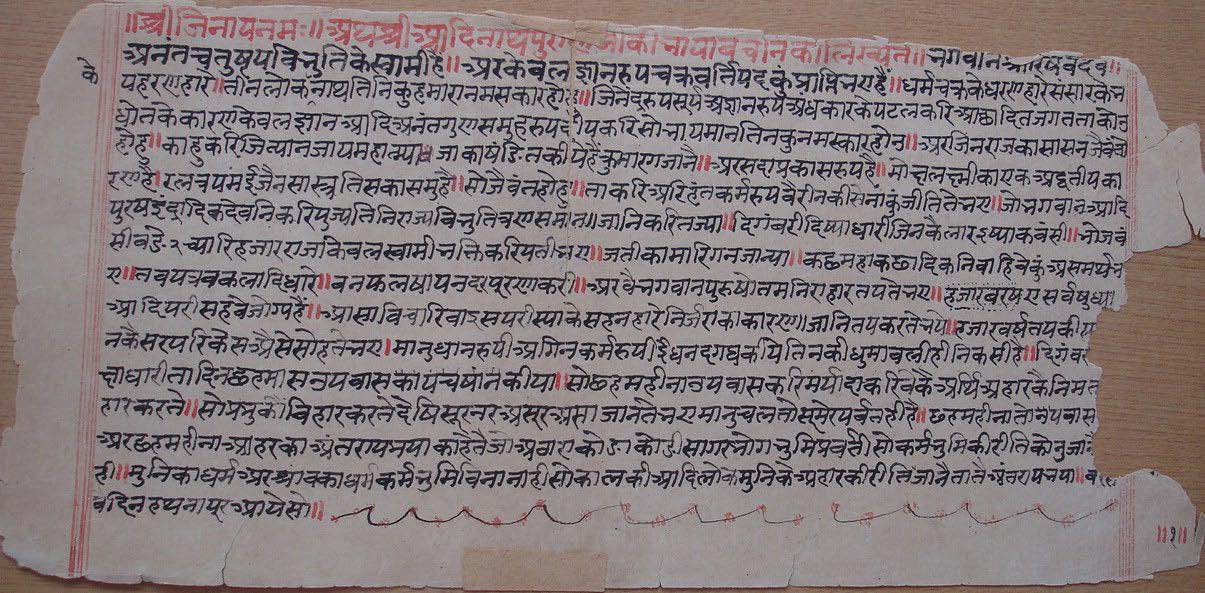 ॥श्री जिनायनमः॥ अथ श्री आदिनाथपुराण जी की भाषा वचनिका लिख्यते॥ भगवान श्रीऋषवदेव
अनंतचतुष्टयविभूति के स्वामी है॥ अर केवल ज्ञानरूप चक्रवर्तिपदकुं प्राप्ति भए हैं॥ धर्मचक्र के धरणहार संसार के भ
यहरणहारे॥ तीनलोक नाथ तिनिकुं हमारा नमसकार होहु॥ जिनेंद्ररूप सूर्य अज्ञानरूप अंधकार के पटलकरि आछादित जगत ताका उ
द्योत के कारण केवल ज्ञान आदि अनंतगुण समुहरूप करि सोभायमान तिनकुं नमस्कार होहु॥ अर जिनराज का सासन जैवंतो
होहु॥ काहु करि जित्या न जाय महात्म्य जाका पंडित की पै है कुमारग जानै॥ अर सदा प्रकासरूप है॥ मोक्ष लक्ष्मी का एक अद्वतीय का
रण है॥ रत्नत्रयमई जैनसास्त्र तिसका समुह है॥ सो जैवंत होहु॥ ता करि अरिहंत कर्मरूप वैरीन की सेनाकुं जीतिते भए॥ जो भगवान आदि
पुरष इंद्रादिक देवनि करि पुज्य तिनि राज्यविभुति त्रण समान॥ जानि करि तज्या॥ दिगंबरी दिष्या धारी जिनकै लार इष्याकवंसी॥ भोजवं
सी बडे २ च्यारि हजार राजा केवल स्वामी भक्ति करि यती भए॥ जती का मारग न जान्या॥ कछ महाकछादिक निवाहिवेकुं असमर्थ भ
ए॥ तब पत्र वकलादि धारे॥ वनफल भषाय न पूरण करी॥ अर वै भगवान पुरुषोतम निराहार तप तपते भए॥ हजार बरष सर्व षुध्या
आदि परीसह वे जोग्य है॥ परीस्या के सहनहारे निर्जरा का कारण॥ जानि तप करते भये॥ हजार वर्ष तप कीय
केस अैसे सोहते भए॥ मानु ध्यानरूपी अगिन कर्मरूपी ईंधन दगध कीये तिनकी धुमावली ही निकसी है॥ दिगंबर
धारी ता दिन छहमास उपवास का पचषान कीया॥ सो छह महीना उपवास करि मर्यादा अहार कै निमत
हार करते॥ सो प्रभु कौ विहार करते देषि सूर नर असुर असा जानते भए मानु चलतो सुमेर पर्वत ही है॥ छह महीना तो उपवास
अर छह महीना आहार का अंतराय भया काहे तै जो अवार कोडाकोडी सागर भोगभुमि प्रवर्ती सो कर्मभुमि की रीति कोउ जानै
ही॥ मुनि का धर्म अर श्रावक का धर्म कर्मभुमि विना नाही सो काल की आदि लोक मुनि के अहार की रीति जानै ना तै अंतराय भया॥
दिन हथनापुर आये सो॥
॥१॥